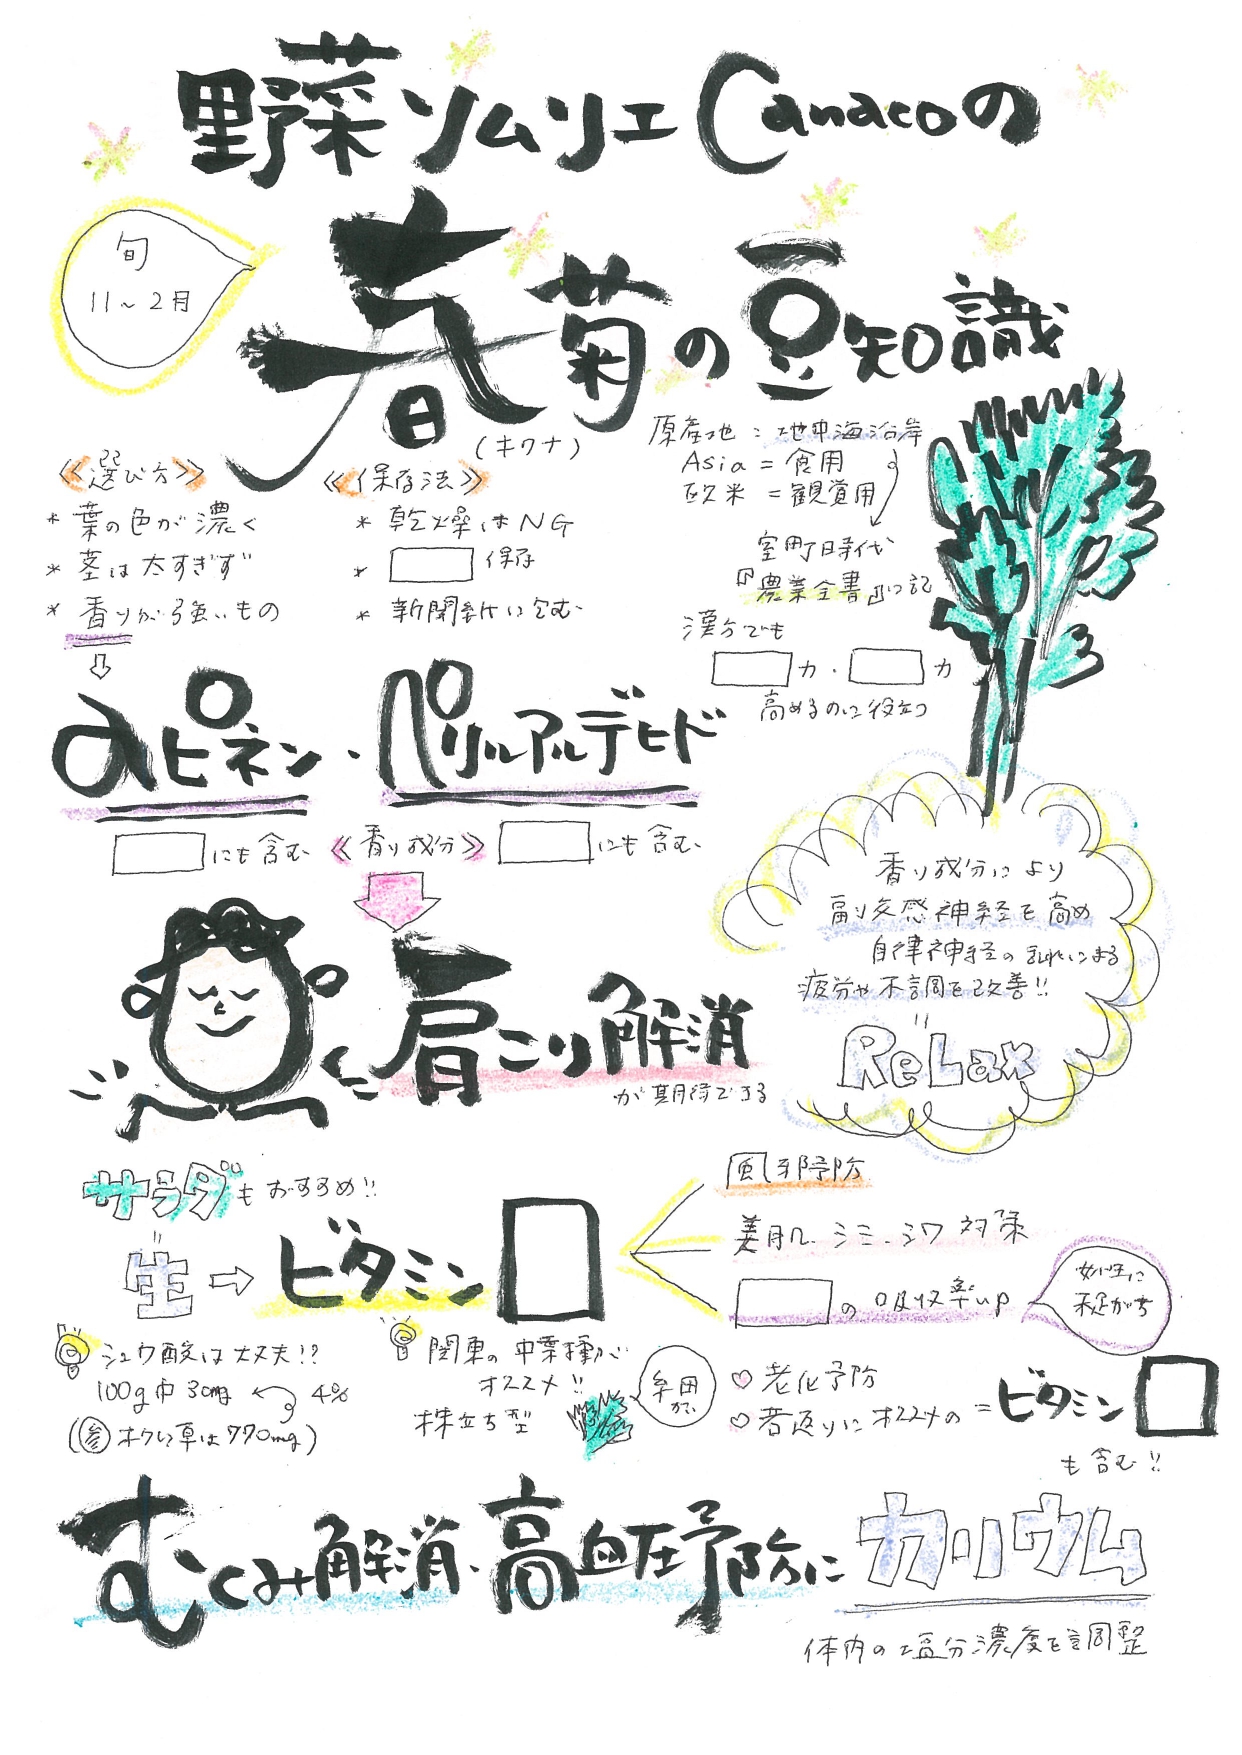 野菜ソムリエCanacoの
旬
11～2月
春菊の豆知識
(キクナ)
原産地：地中海沿岸
Asia = 食用
欧米 = 観賞用
室町時代
『農業全書』に記
漢方でも
力・ 力
高めるのに役立つ
《選び方》
* 葉の色が濃く
* 茎は太すぎず
* 香りが強いもの
《保存法》
* 乾燥はNG
* 保存
* 新聞紙に包む
αピネン・ペリルアルデヒド
にも含む
《香り成分》
にも含む
肩こり解消
が期待できる
香り成分により
副交感神経を高め
自律神経の乱れによる
疲労や不調を改善!!
"
ReLax
サラダもおすすめ!!
"
生⇨ビタミン
風邪予防
美肌・シミ・シワ対策
の吸収率up
女性に
不足がち
シュウ酸は大丈夫!?
100g中30mg 4%
(参ホウレン草は770mg)
関東の中葉種が
オススメ!!
株立ち型
♡老化予防
♡若返りにオススメの=ビタミン
も含む!!
むくみ解消・高血圧予防にカリウム
体内の塩分濃度を調整